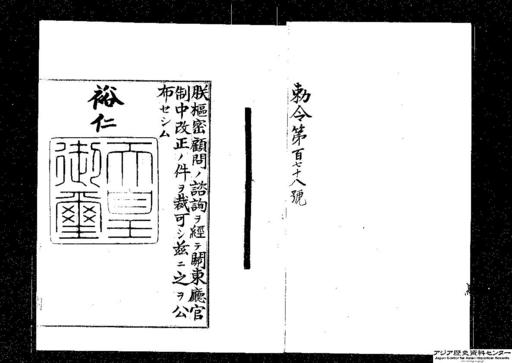 勅令第百七十八號
朕樞密顧問ノ諮詢ヲ經テ關東廳官
制中改正ノ件ヲ裁可シ茲ニ之ヲ公
布セシム
裕仁
天皇
御璽
アジア歴史資料センター
Japan Center for Asian Historical Records